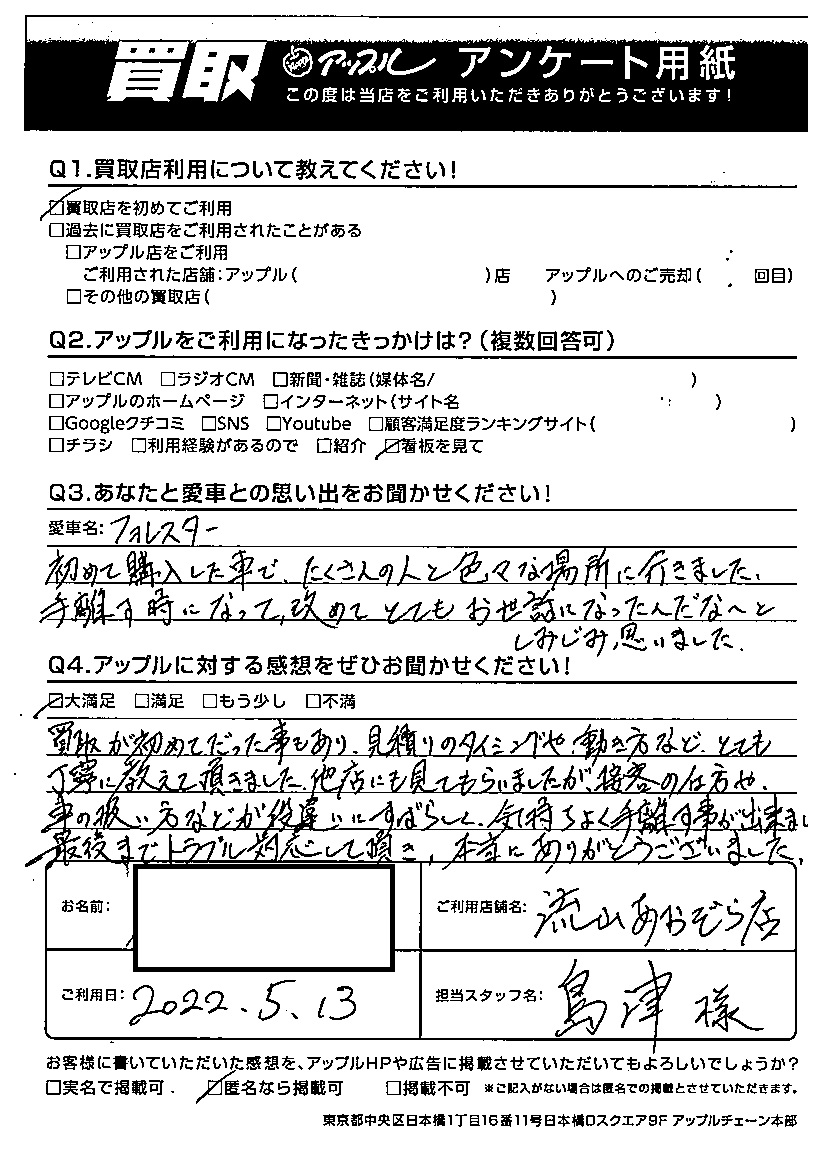 買取 アップル アンケート用紙
この度は当店をご利用いただきありがとうございます！
Q1.買取店利用について教えてください！
☑買取店を初めてご利用
□過去に買取店をご利用されたことがある
□アップル店をご利用
ご利用された店舗:アップル( )店 アップルへのご売却( 回目)
□その他の買取店( )
Q2.アップルをご利用になったきっかけは?(複数回答可)
□テレビCM □ラジオCM □新聞・雑誌(媒体名/ )
□アップルのホームページ □インターネット(サイト名 )
□Googleクチコミ □SNS □Youtube □顧客満足度ランキングサイト( )
□チラシ □利用経験があるので □紹介 ☑看板を見て
Q3.あなたと愛車との思い出をお聞かせください！
愛車名:フォレスター
初めて購入した車で、たくさんの人と色々な場所に行きました。
手離す時になって、改めてとてもお世話になったんだな〜と
しみじみ思いました。
Q4.アップルに対する感想をぜひお聞かせください！
☑大満足 □満足 □もう少し □不満
買取が初めてだった事もあり、見積りのタイミングや、動き方など、とても
丁寧に教えて頂きました。他店にも見てもらいましたが、接客の仕方や、
車の扱い方などが段違いにすばらしく、気持ちよく手離す事が出来まし
最後までトラブル対応して頂き、本当にありがとうございました。
お名前: ご利用店舗名: 流山あおぞら店
ご利用日: 2022.5.13 担当スタッフ名: 島津様
お客様に書いていただいた感想を、アップルHPや広告に掲載させていただいてもよろしいでしょうか?
□実名で掲載可. ☑匿名なら掲載可 □掲載不可 ※ご記入がない場合は匿名での掲載とさせていただきます。
東京都中央区日本橋1丁目16番11号日本橋Dスクエア9F アップルチェーン本部